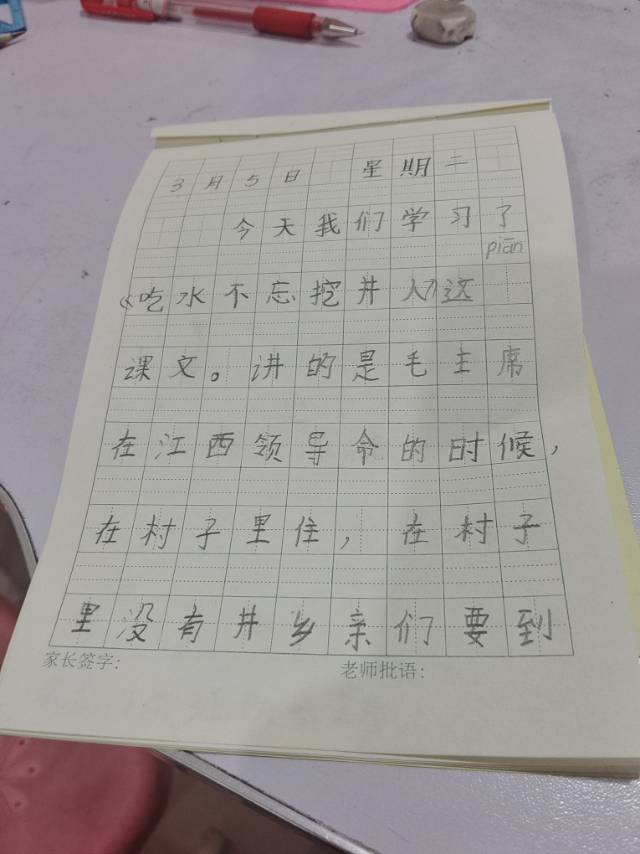 3月5日 星期二
今天我们学习了
piān
《吃水不忘挖井人》这
课文。讲的是毛主席
在江西领导命的时候，
在村子里住， 在村子
里没有井乡亲们要到
家长签字： 老师批语：